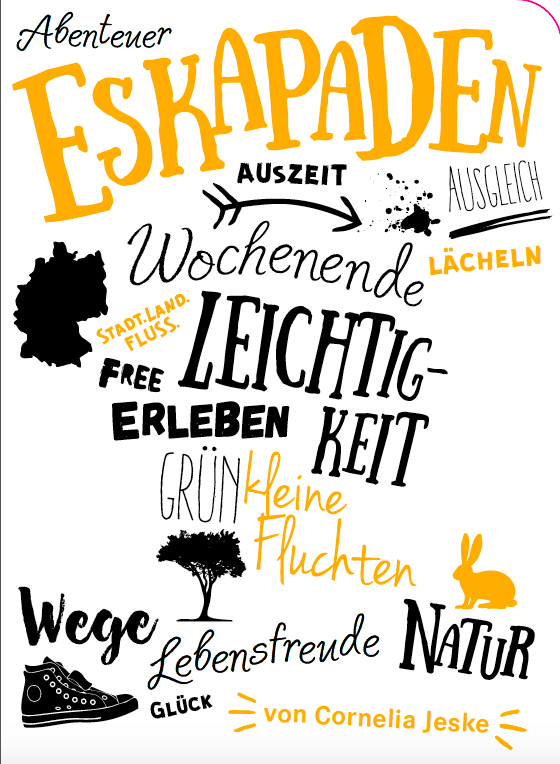 Abenteuer
ESKAPADEN
AUSZEIT
AUSGLEICH
Wochenende
LÄCHELN
STADT.LAND.
FLUSS.
LEICHTIG-
KEIT
FREE
ERLEBEN
GRÜN
kleine
Fluchten
Wege
Lebensfreude
NATUR
GLÜCK
von Cornelia Jeske